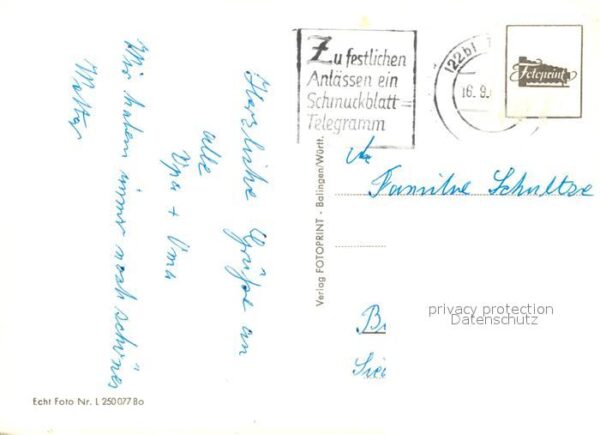 Zu festlichen
Anlässen ein
Schmuckblatt=
Telegramm
(22b)
16. 9.
Fotoprint
Herzliche Grüße an
alle
Opa + Oma
Wir haben immer noch schönes
Wetter
An
Familie Schultze
privacy protection
Datenschutz
Verlag FOTOPRINT - Balingen/Württ.
Echt Foto Nr. L 250077 Bo